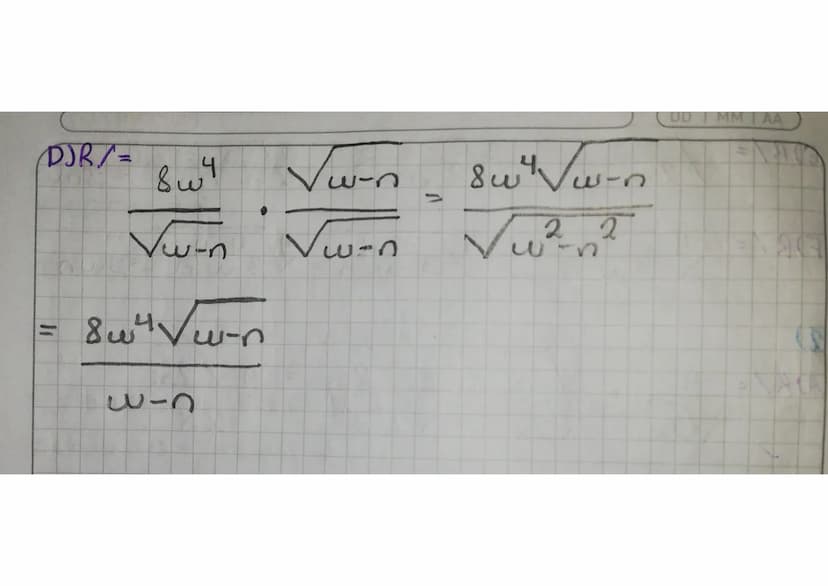 DD | MM | AA
D)R/= 8w⁴/√(w-n) · √(w-n)/√(w-n) = 8w⁴√(w-n)/√(w²-n²)
= 8w⁴√(w-n)/w-n